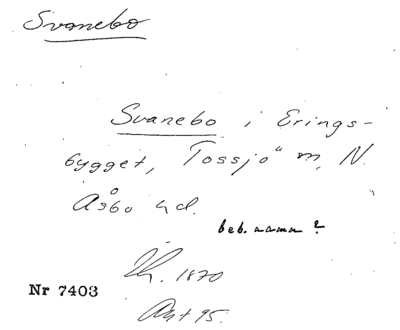 Svanebo
Svanebo i Erings-
bygget, Tossjö m, N.
Åsbo hd.
beb. namn?
Th. 1870
Nr 7403
Akt 95.